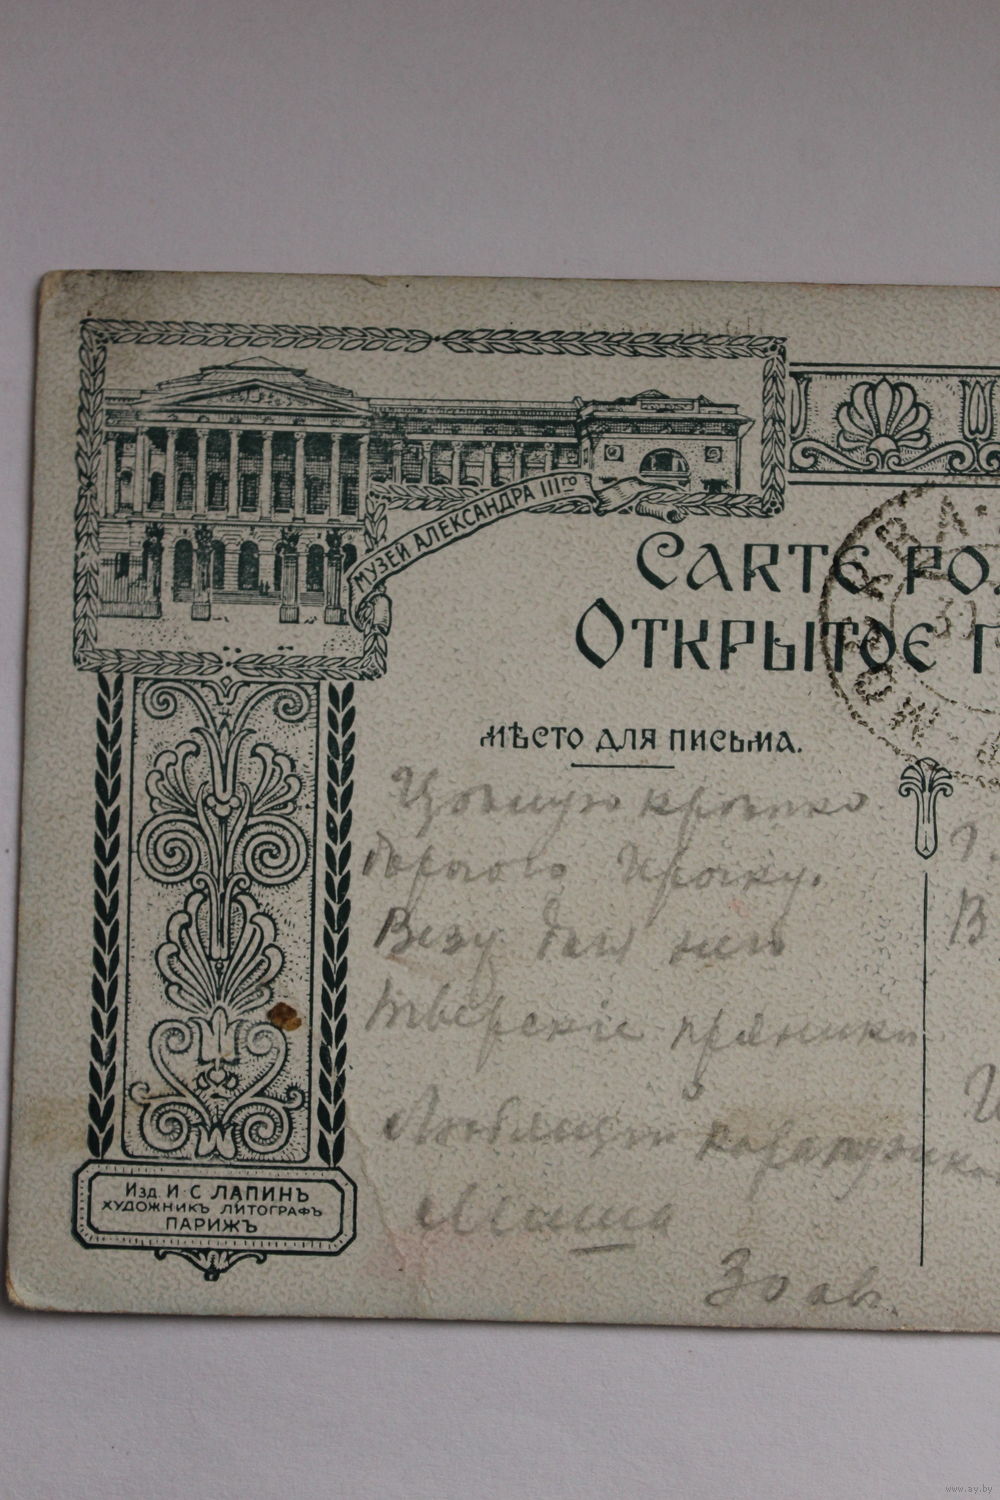 МУЗЕЙ АЛЕКСАНДРА IIIГО
CARTE PO
ОТКРЫТОЕ П
МѢСТО ДЛЯ ПИСЬМА.
МОСКВА
30
Цѣлую крѣпко
дорогого Ирочку.
Везу для него
тверскіе пряники
Любящій карапузика
Маша
30 ав.
В
Изд. И. С. ЛАПИНЪ
ХУДОЖНИКЪ ЛИТОГРАФЪ
ПАРИЖЪ
www.ay.by